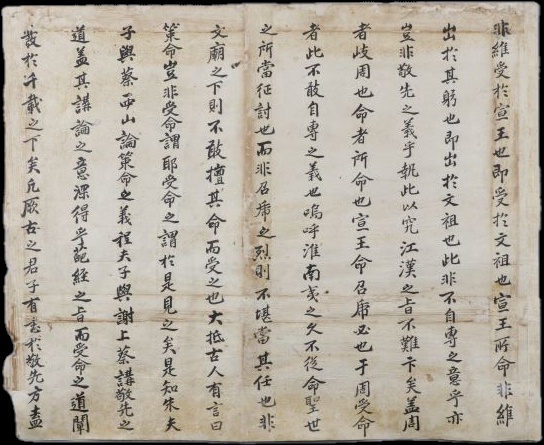 非維受於宣王也即受於文祖也宣王所命非維
出於其躬也即出於文祖也此非不自專之意乎亦
豈非敬先之義乎執此以究江漢之旨不難卞矣盖周
者歧周也命者所命也宣王命召虎必也于周受命
者此不敢自專之義也嗚呼淮南夷之久不從命聖世
之所當征討也而非召虎之烈則不堪當其任也非
文廟之下則不敢擅其命而受之也大抵古人有言曰
策命豈非受命謂耶受命之謂於是見之矣是知朱夫
子與蔡西山論策命之義程夫子與謝上蔡講敬先之
道盖其講論之意深得乎葩經之旨而受命之道闡
發於千載之下矣凡厥古之君子有志於敬先方盍